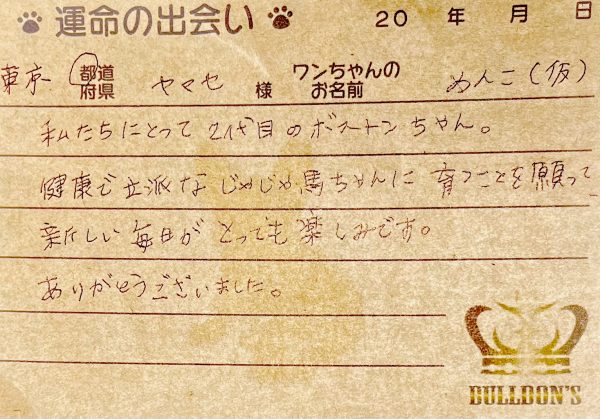 運命の出会い 20 年 月 日
東京 都道府県 ヤマセ 様 ワンちゃんのお名前 めんこ(仮)
私たちにとって2代目のボストンちゃん。
健康で立派なじゃじゃ馬ちゃんに育つことを願って
新しい毎日がとっても楽しみです。
ありがとうございました。
BULLDON'S